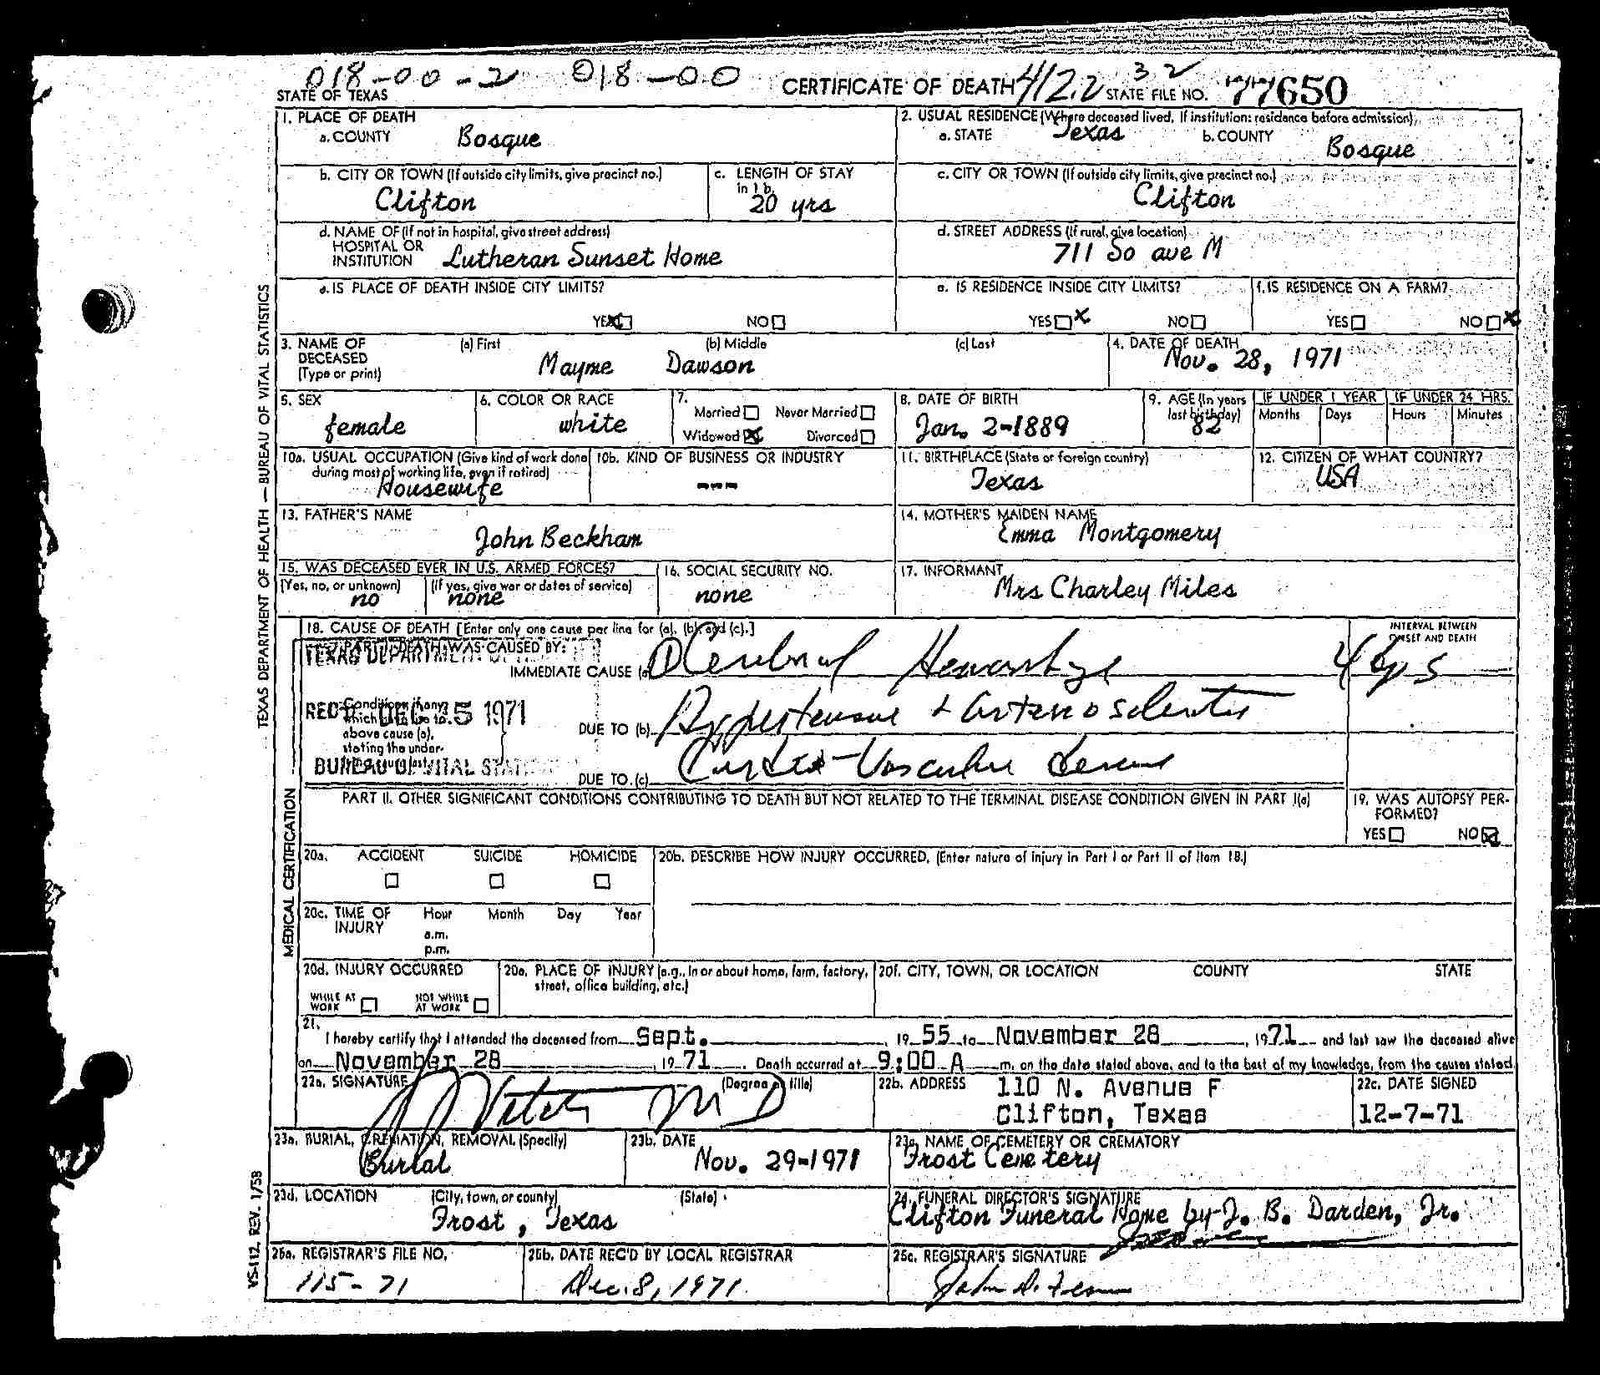 018-00-2 018-00 CERTIFICATE OF DEATH 412.2 32 STATE FILE NO. 77650
STATE OF TEXAS
1. PLACE OF DEATH
a. COUNTY Bosque
2. USUAL RESIDENCE (Where deceased lived, If institution: residence before admission)
a. STATE Texas b. COUNTY Bosque
b. CITY OR TOWN (If outside city limits, give precinct no.) Clifton
c. LENGTH OF STAY in 1b. 20 yrs
c. CITY OR TOWN (If outside city limits, give precinct no.) Clifton
d. NAME OF (If not in hospital, give street address) HOSPITAL OR INSTITUTION Lutheran Sunset Home
d. STREET ADDRESS (If rural, give location) 711 So ave M
e. IS PLACE OF DEATH INSIDE CITY LIMITS?
YES X NO
e. IS RESIDENCE INSIDE CITY LIMITS?
YES X NO
f. IS RESIDENCE ON A FARM?
YES NO X
3. NAME OF DECEASED (Type or print) (a) First (b) Middle (c) Last
Mayme Dawson
4. DATE OF DEATH
Nov. 28, 1971
5. SEX female
6. COLOR OR RACE white
7. Married Never Married
Widowed X Divorced
8. DATE OF BIRTH Jan. 2-1889
9. AGE (In years last birthday) 82
IF UNDER 1 YEAR Months Days
IF UNDER 24 HRS. Hours Minutes
10a. USUAL OCCUPATION (Give kind of work done during most of working life, even if retired) Housewife
10b. KIND OF BUSINESS OR INDUSTRY ---
11. BIRTHPLACE (State or foreign country) Texas
12. CITIZEN OF WHAT COUNTRY? USA
13. FATHER'S NAME John Beckham
14. MOTHER'S MAIDEN NAME Emma Montgomery
15. WAS DECEASED EVER IN U.S. ARMED FORCES?
(Yes, no, or unknown) no (If yes, give war or dates of service) none
16. SOCIAL SECURITY NO. none
17. INFORMANT Mrs Charley Miles
18. CAUSE OF DEATH [Enter only one cause per line for (a), (b) and (c).]
INTERVAL BETWEEN ONSET AND DEATH
PART I. DEATH WAS CAUSED BY:
TEXAS DEPARTMENT OF
IMMEDIATE CAUSE (a) Cerebral Hemorrhage
REC'D DEC 15 1971
Conditions, if any, which
above cause (a), stating the under-
DUE TO (b) Hypertensive + Arteriosclerotic
BUREAU OF VITAL STATISTICS
DUE TO (c) Cardio-Vascular Disease
PART II. OTHER SIGNIFICANT CONDITIONS CONTRIBUTING TO DEATH BUT NOT RELATED TO THE TERMINAL DISEASE CONDITION GIVEN IN PART I(a)
19. WAS AUTOPSY PERFORMED?
YES NO X
20a. ACCIDENT SUICIDE HOMICIDE
20b. DESCRIBE HOW INJURY OCCURRED, (Enter nature of injury in Part I or Part II of item 18.)
20c. TIME OF INJURY Hour Month Day Year
a.m.
p.m.
20d. INJURY OCCURRED
WHILE AT WORK NOT WHILE AT WORK
20e. PLACE OF INJURY (e.g., in or about home, farm, factory, street, office building, etc.)
20f. CITY, TOWN, OR LOCATION COUNTY STATE
21.
I hereby certify that I attended the deceased from Sept. , 19 55 to November 28 , 19 71 and last saw the deceased alive
on November 28 19 71. Death occurred at 9:00 A m. on the date stated above, and to the best of my knowledge, from the causes stated.
22a. SIGNATURE (Degree or title) M D
22b. ADDRESS 110 N. Avenue F
Clifton, Texas
22c. DATE SIGNED
12-7-71
23a. BURIAL, CREMATION, REMOVAL (Specify) Burial
23b. DATE Nov. 29-1971
23c. NAME OF CEMETERY OR CREMATORY Frost Cemetery
23d. LOCATION (City, town, or county) (State)
Frost, Texas
24. FUNERAL DIRECTOR'S SIGNATURE
Clifton Funeral Home by-J. B. Darden, Jr.
25a. REGISTRAR'S FILE NO. 115-71
25b. DATE REC'D BY LOCAL REGISTRAR Dec. 8, 1971
25c. REGISTRAR'S SIGNATURE
TEXAS DEPARTMENT OF HEALTH — BUREAU OF VITAL STATISTICS
MEDICAL CERTIFICATION
VS-112, REV. 1/58